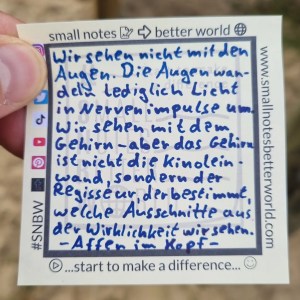 small notes ⇨ better world
Wir sehen nicht mit den
Augen. Die Augen wan-
deln lediglich Licht
in Nervenimpulse um.
Wir sehen mit dem
Gehirn – aber das Gehirn
ist nicht die Kinolein-
wand, sondern der
Regisseur, der bestimmt,
welche Ausschnitte aus
der Wirklichkeit wir sehen.
- Affen im Kopf -
...start to make a difference...
#SNBW
www.smallnotesbetterworld.com